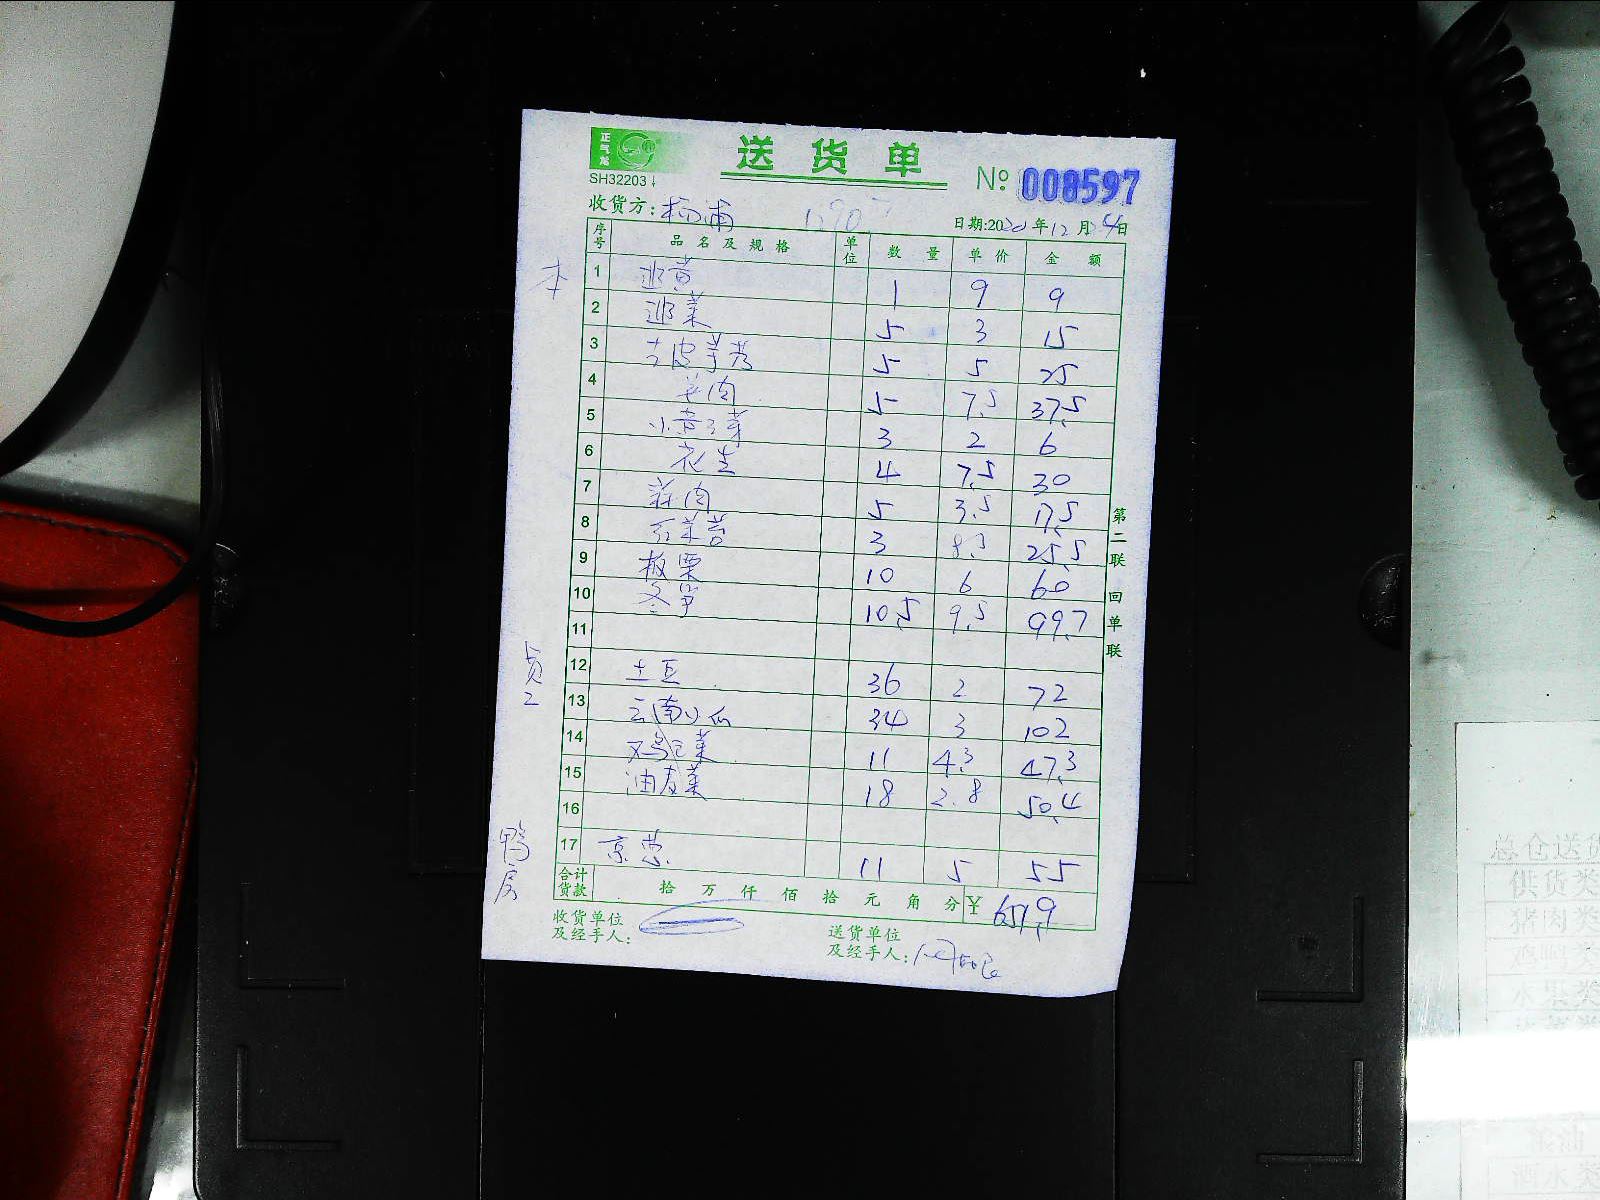 正气龙
送货单
SH32203
№ 008597
收货方: 杨浦
日期:2020年12月4日
序号 品名及规格 单位 数量 单价 金额
本
1 韭黄 1 9 9
2 韭菜 5 3 15
3 去皮芋艿 5 5 25
4 羊肉 5 7.5 37.5
5 小黄豆芽 3 2 6
6 花生 4 7.5 30
7 蒜肉 5 3.5 17.5
8 红菜苔 3 8.5 25.5
9 板栗 10 6 60
10 冬笋 10.5 9.5 99.7
11
员工
12 土豆 36 2 72
13 云南小瓜 34 3 102
14 鸡毛菜 11 4.3 47.3
15 油麦菜 18 2.8 50.4
16
鸭房
17 京葱 11 5 55
合计货款 拾 万 仟 佰 拾 元 角 分 ¥ 651.9
收货单位及经手人:
送货单位及经手人:
第二联 回单联
总仓送货
供货类
猪肉类
水果类
粮油
酒水类